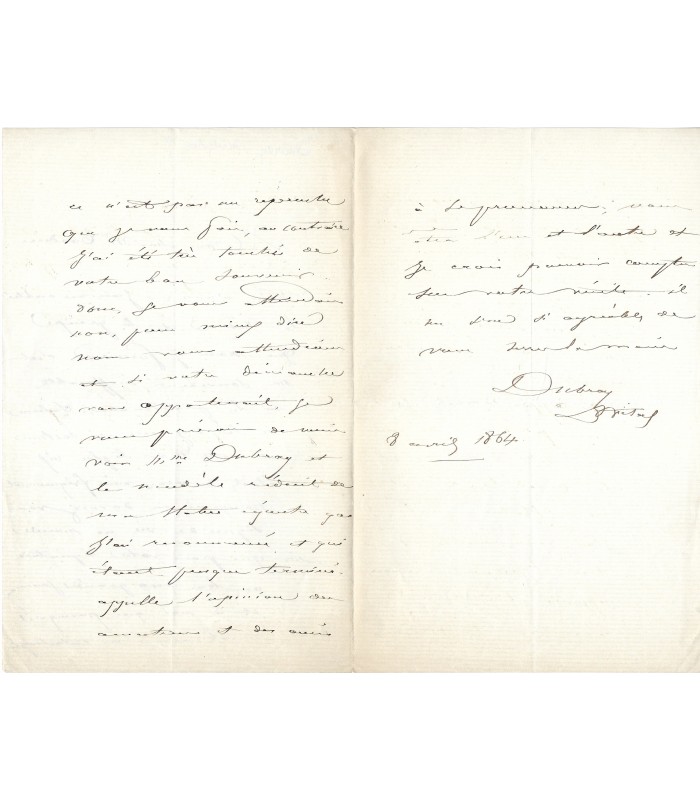 ce n'est pas un reproche
que je vous fais, au contraire
j'ai été très touché de
votre bon souvenir
donc, je vous attendrai
non, pour mieux dire
nous vous attendrons
et si votre dimanche
vous appartenait, je
vous prierais de venir
voir Mme Dubray et
le modèle réduit de
ma statue géante que
j'ai recommencé, et qui
étant presque terminé.
appelle l'opinion des
amateurs et des amis
à se prononcer; vous
êtes l'un et l'autre et
je crois pouvoir compter
sur votre visite. il
m'est si agréable de
vous serrer la main
Dubray
Vital
8 avril 1864